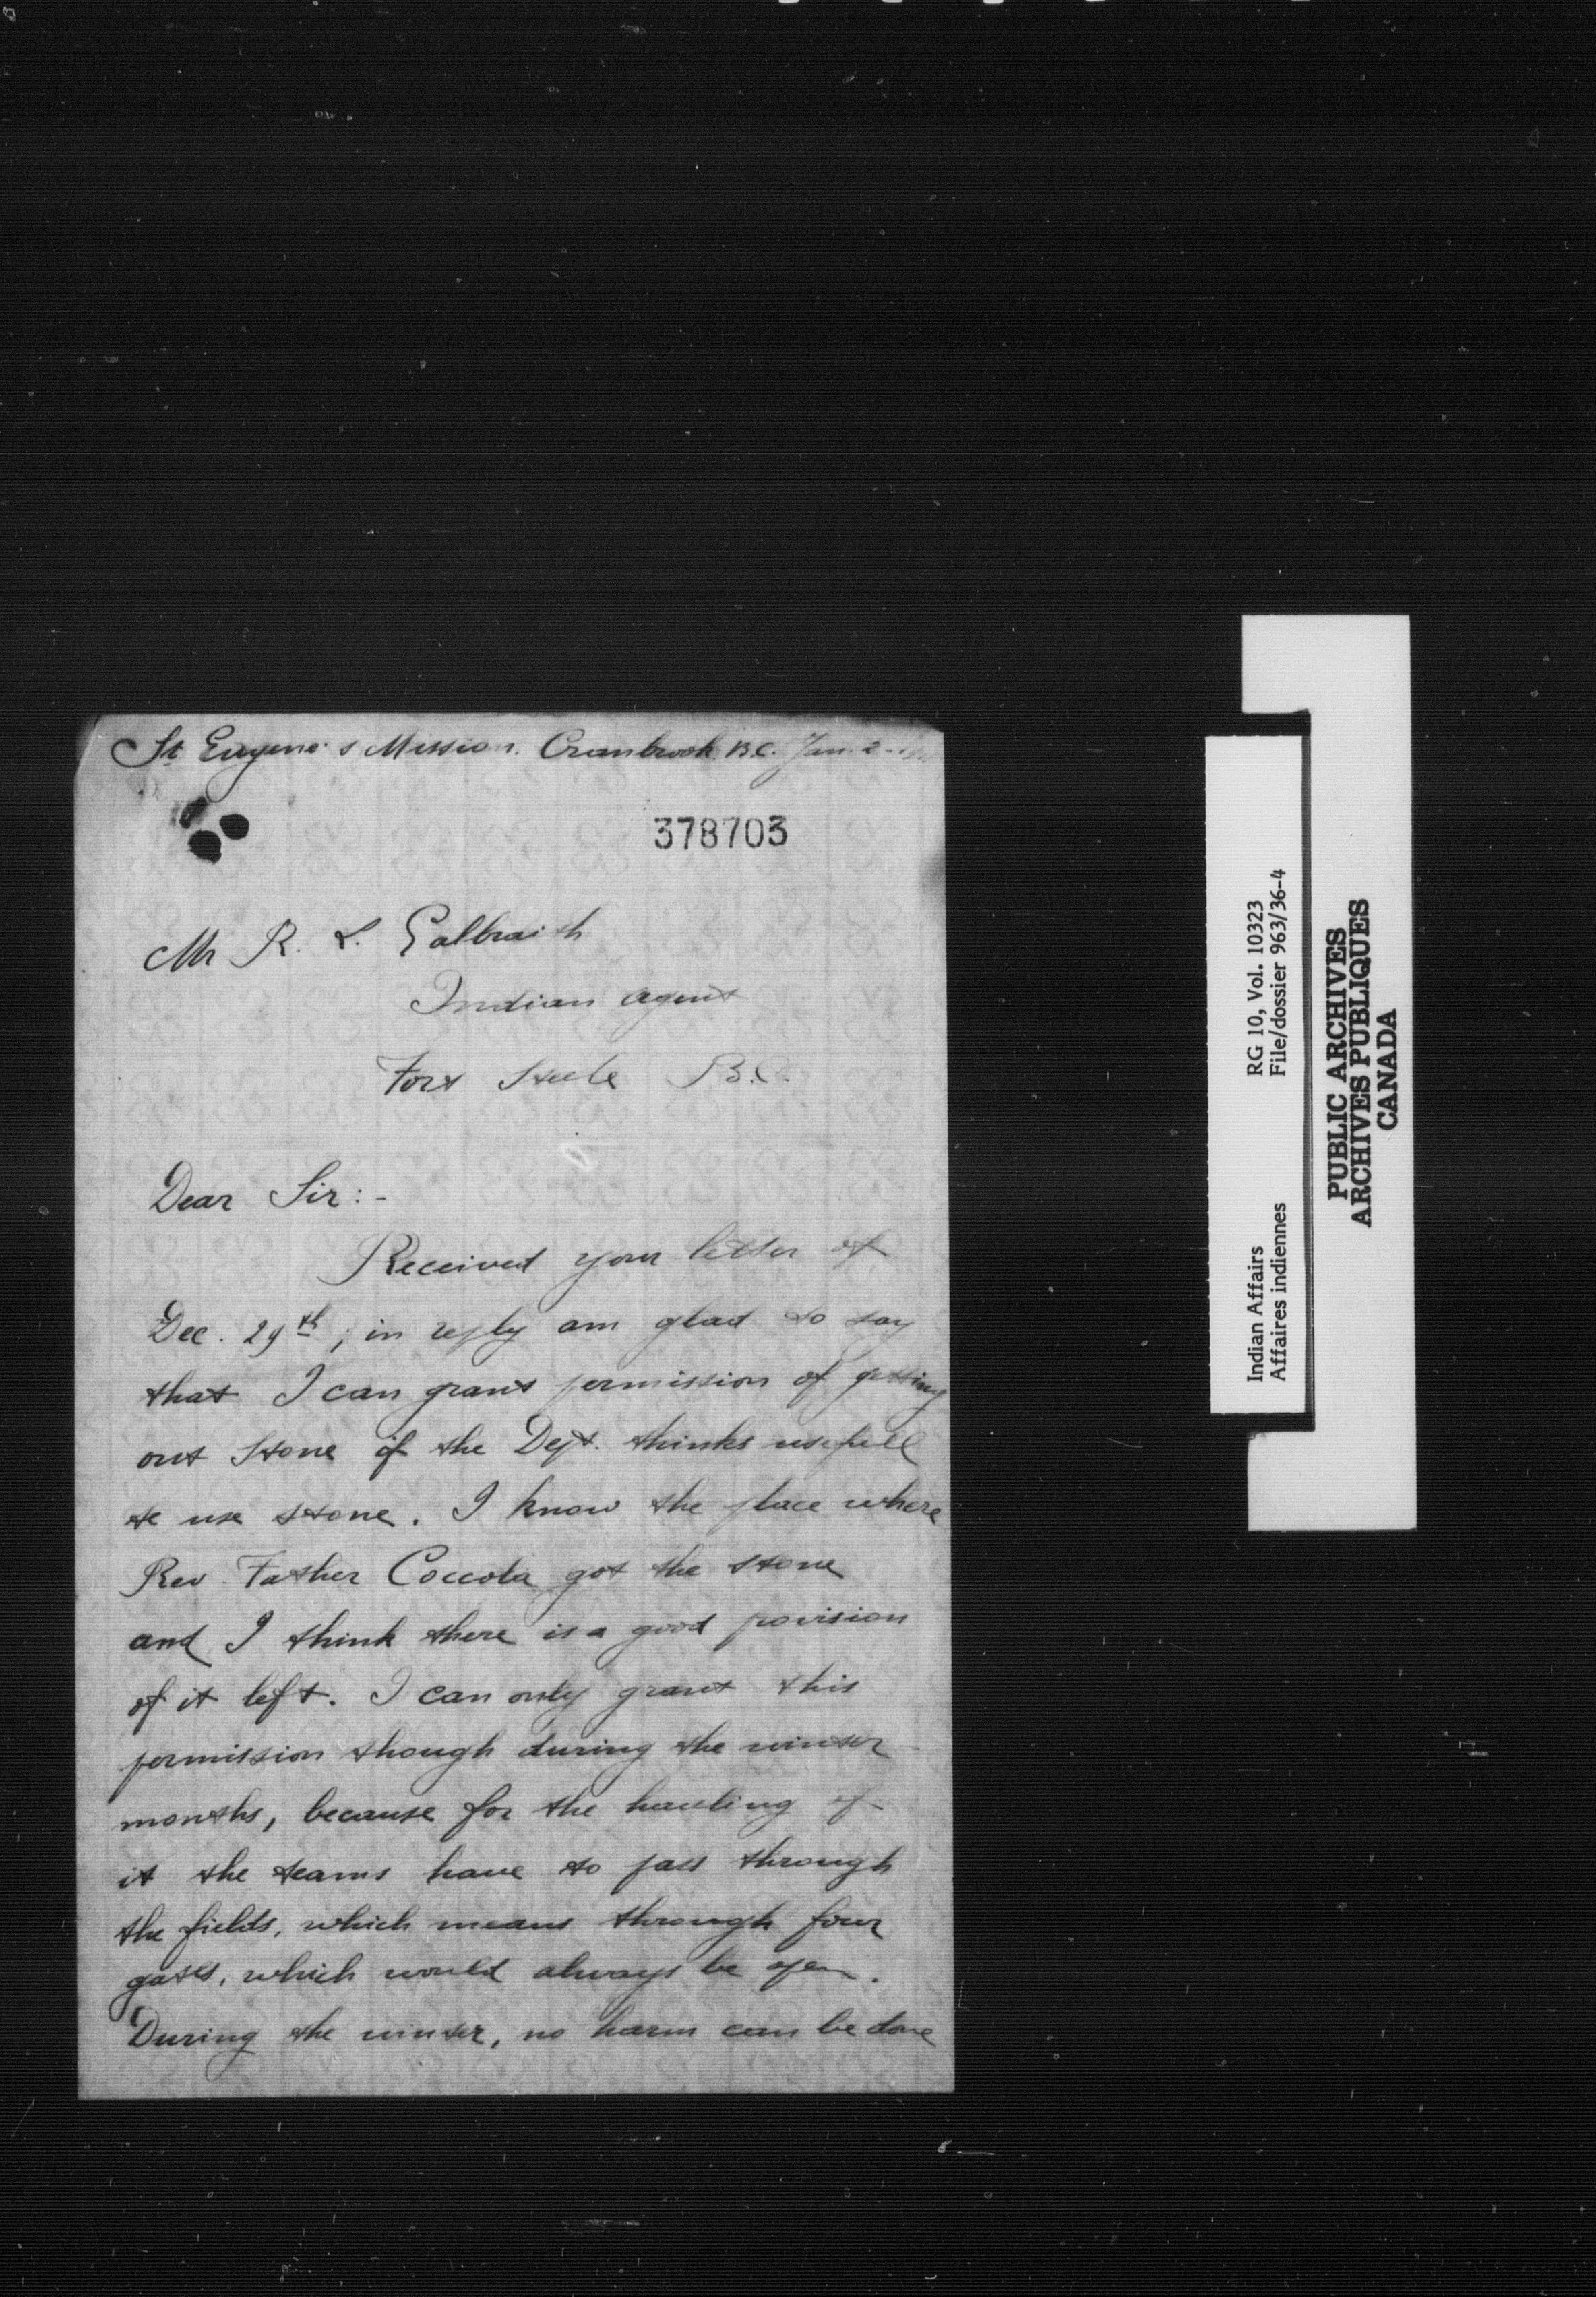 St Eugene's Mission. Cranbrook. B.C. Jan. 2 -
378703
Mr R. L. Galbraith
Indian Agent
Fort Steele B.C.
Dear Sir:-
Received your letter of
Dec. 29th; in reply am glad to say
that I can grant permission of getting
out stone if the Dept. thinks usefull
to use stone. I know the place where
Rev. Father Coccola got the stone
and I think there is a good povision
of it left. I can only grant this
permission though during the winter
months, because for the hauling of
it the teams have to pass through
the fields, which means through four
gates, which would always be open.
During the winter, no harm can be done
Indian Affairs RG 10, Vol. 10323
Affaires indiennes File/dossier 963/36-4
PUBLIC ARCHIVES
ARCHIVES PUBLIQUES
CANADA